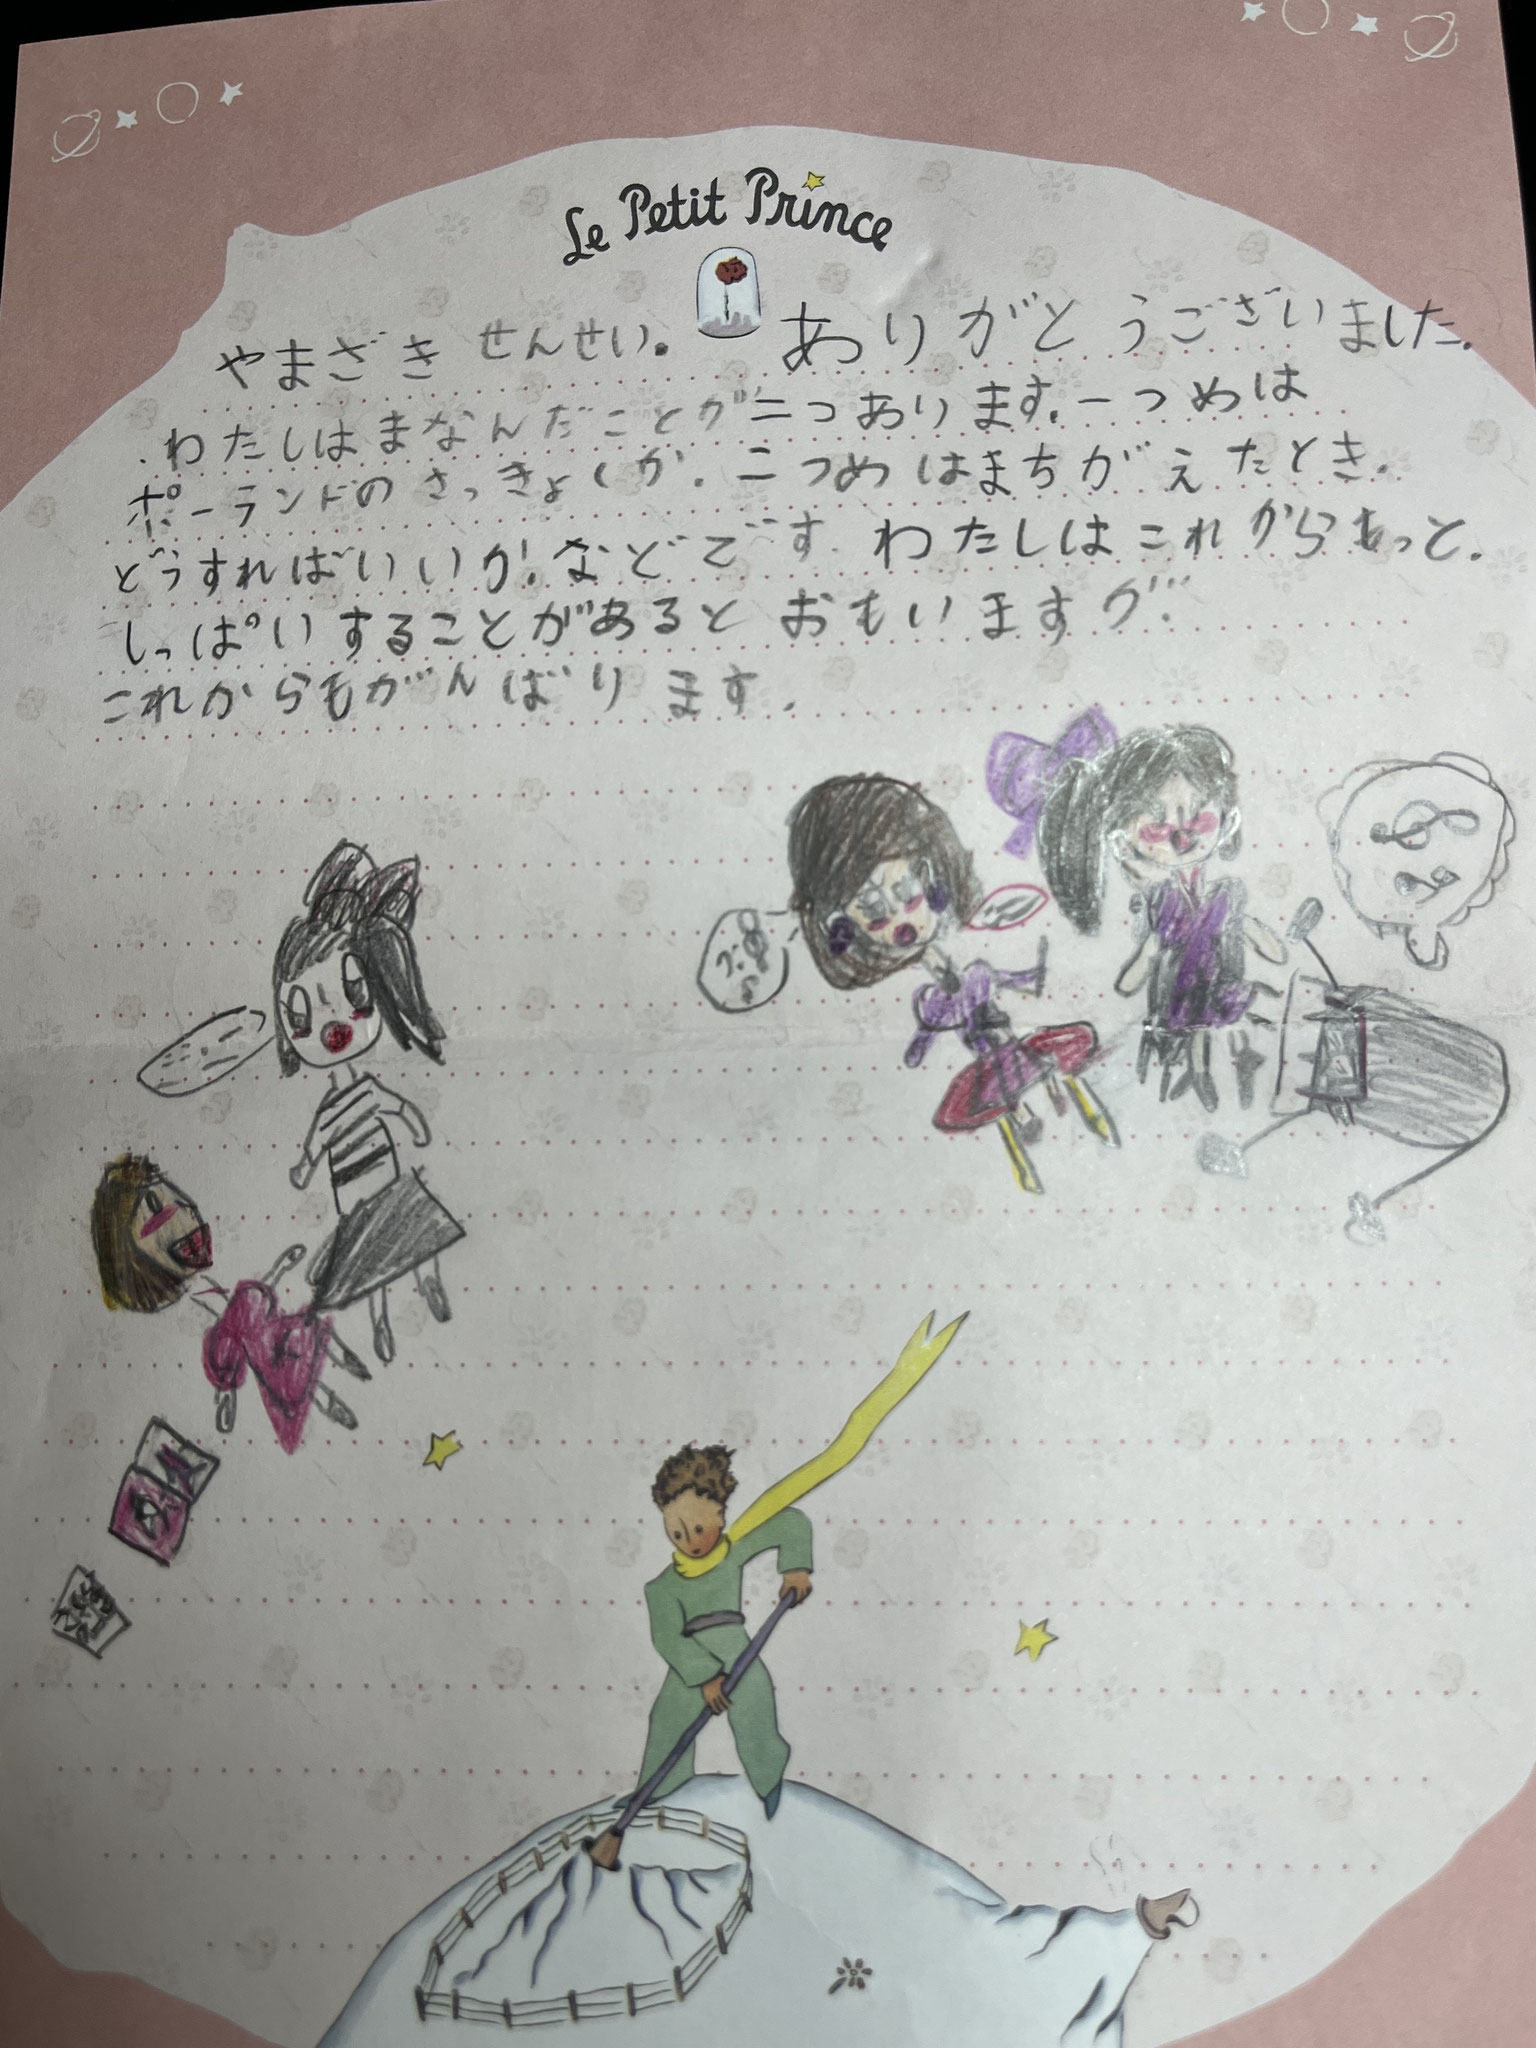 Le Petit Prince
やまざき せんせい。ありがとうございました。
わたしはまなんだことが二つあります。一つめは
ポーランドのさっきょくか。二つめはまちがえたとき。
どうすればいいか。などです。わたしはこれからもっと。
しっぱいすることがあるとおもいますが。
これからもがんばります。